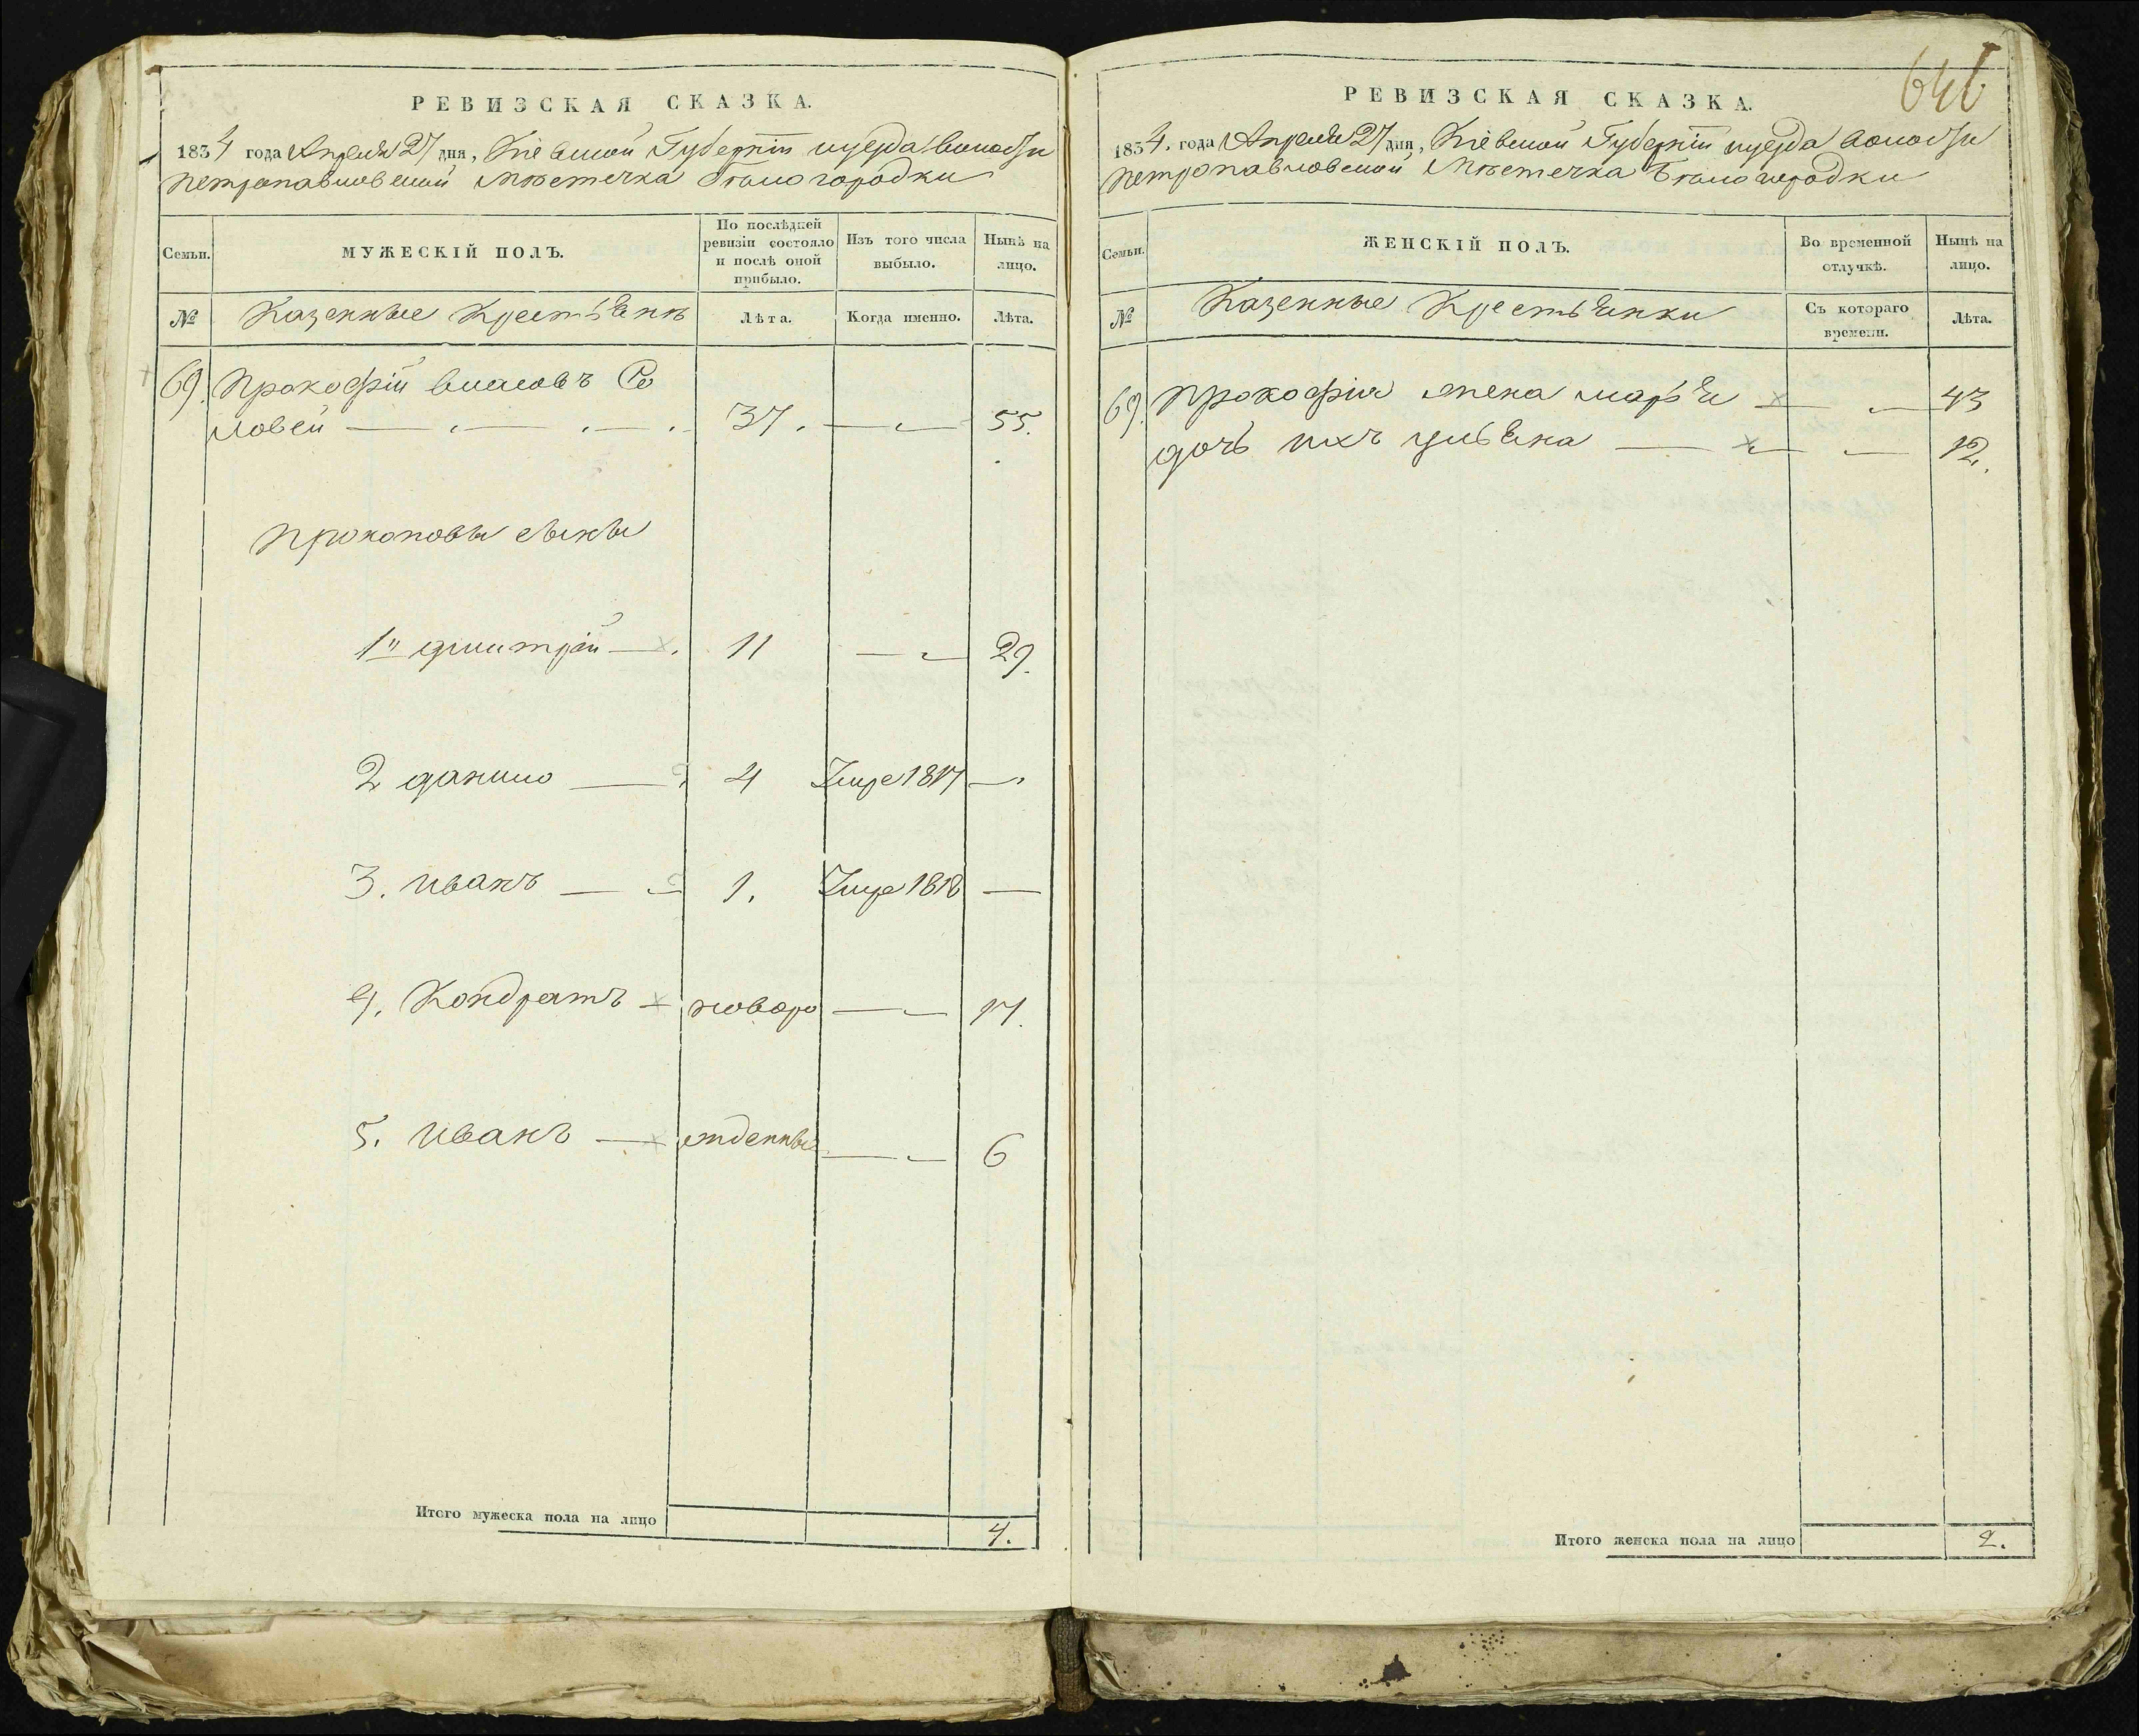 РЕВИЗСКАЯ СКАЗКА.
1834 года Апреля 27 дня, Кіевской Губерніи уезда волости
Петропавловской Мѣстечка Белогородки
Семьи.
МУЖЕСКІЙ ПОЛЪ.
По послѣдней ревизіи состояло и послѣ оной прибыло.
Изъ того числа выбыло.
Нынѣ на лицо.
№
Казенные Крестьяне
Лѣта.
Когда именно.
Лѣта.
69. Прокофій Власовъ Со
ловей 37. 55.
Прокоповы сыны
1й дмитрій 11 29.
2 данило 4 Умре 1817
3. иванъ 1. Умре 1818
4. Кондратъ новоро 17.
5. иванъ жденные 6
Итого мужеска пола на лицо 4.
646
РЕВИЗСКАЯ СКАЗКА.
1834. года Апреля 27 дня, Кіевской Губерніи уезда волости
Петропавловской Мѣстечка Белогородки
Семьи.
ЖЕНСКІЙ ПОЛЪ.
Во временной отлучкѣ.
Нынѣ на лицо.
№
Казенные Крестьянки
Съ котораго времени.
Лѣта.
69. Прокофія жена марья 43
дочь ихъ ульяна 12.
Итого женска пола на лицо 2.